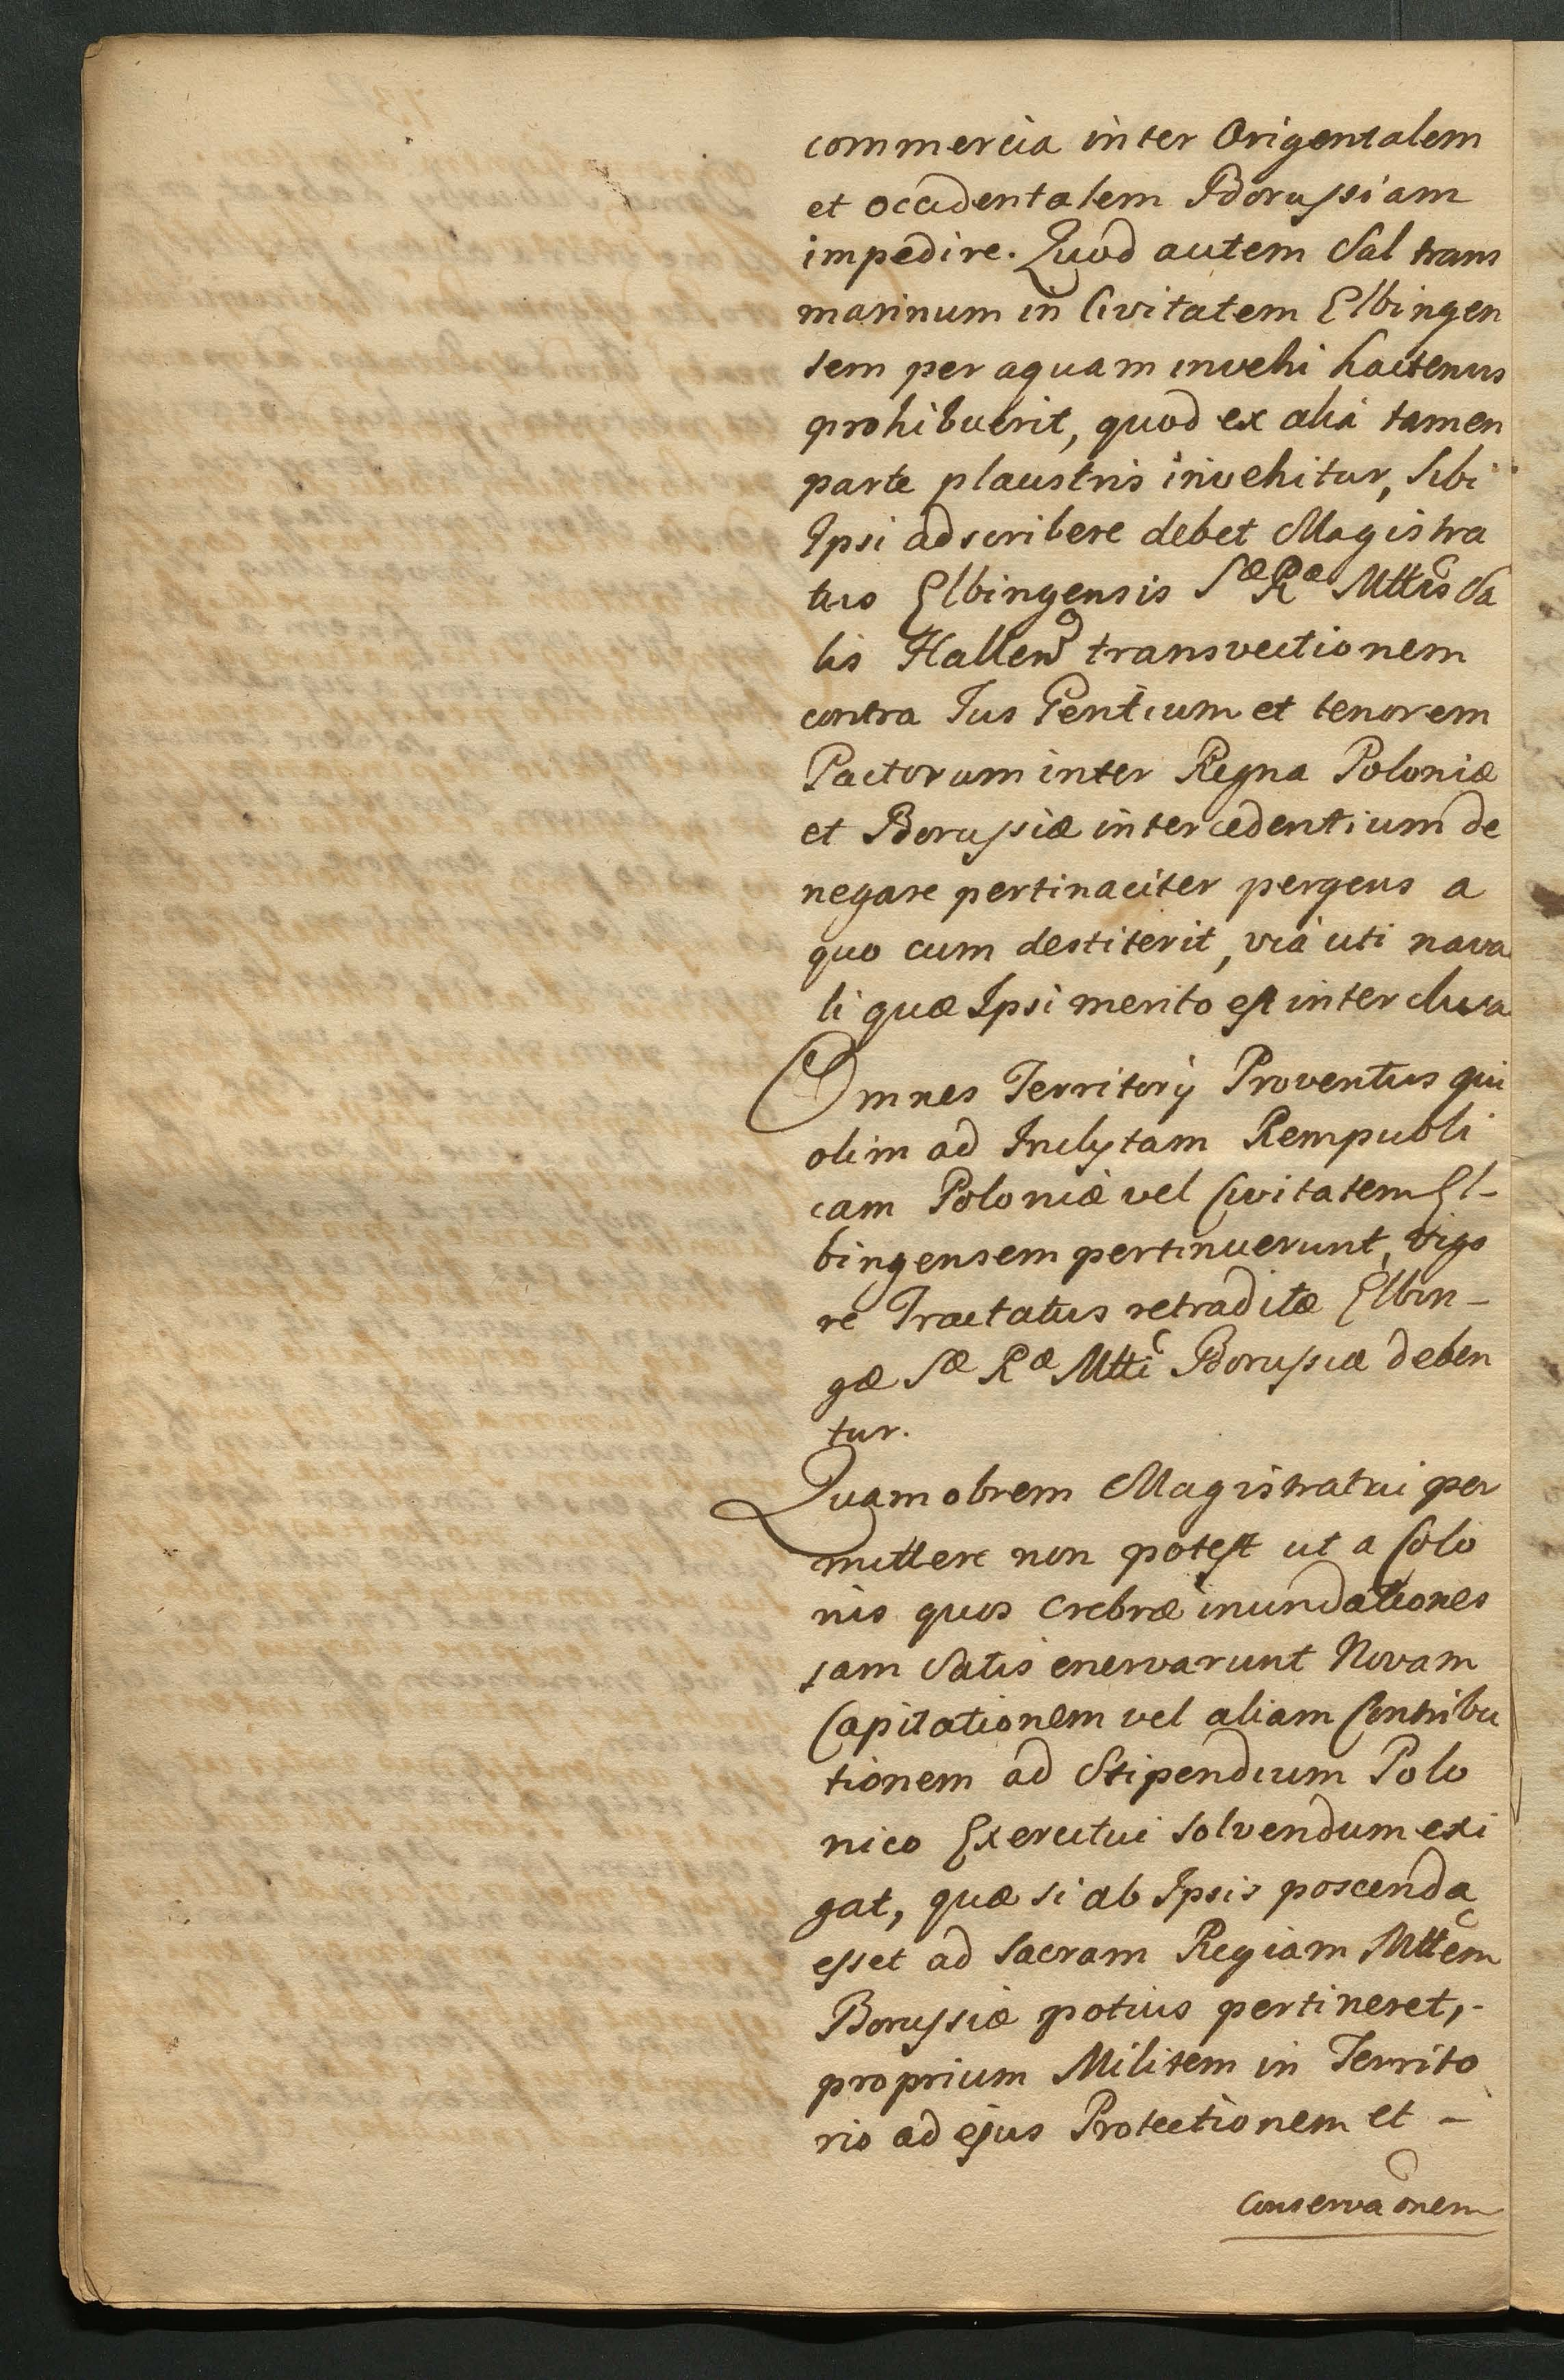 commercia inter Origentalem
et occidentalem Borussiam
impedire. Quod autem Sal trans
marinum in Civitatem Elbingen
sem per aquam invehi hactenus
prohibuerit, quod ex aliâ tamen
parte plaustris invehitur, sibi
Ipsi adscribere debet Magistra
tus Elbingensis Sæ Ræ Mttis Sa
lis Hallens transvectionem
contra Jus Gentium et tenorem
Pactorum inter Regna Poloniæ
et Borussiæ intercedentium de
negare pertinaciter pergens a
quo cum destiterit, viâ uti nava
li quæ Ipsi merito est interclusa
Omnes Territorij Proventus qui
olim ad Inclytam Rempubli
cam Poloniæ vel Civitatem El-
bingensem pertinuerunt, vigo
re Tractatus retraditæ Elbin-
gæ Sæ Ræ Mtti Borussiæ deben
tur.
Quamobrem Magistratui per
mittere non potest ut a Colo
nis quos crebræ inundationes
jam satis enervarunt Novam
Capitationem vel aliam Contribu
tionem ad Stipendium Polo
nico Exercitui solvendum exi
gat, quæ si ab Ipsis poscenda
esset ad Sacram Regiam Mttem
Borussiæ potius pertineret,-
proprium Militem in Territo
rio ad ejus Protectionem et -
conservaonem